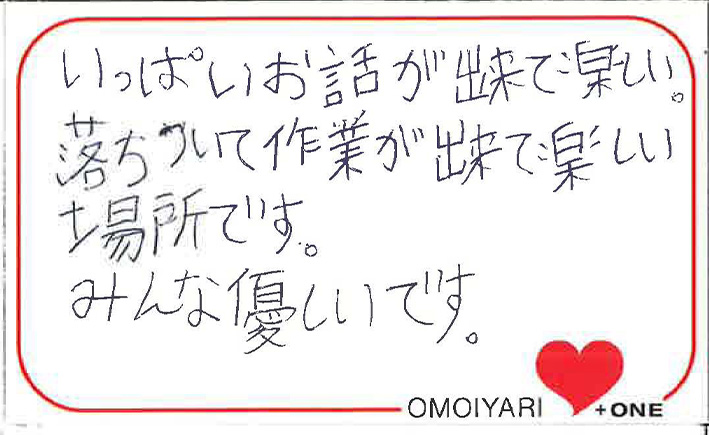 いっぱいお話が出来て楽しい。
落ちついて作業が出来て楽しい
場所です。
みんな優しいです。
OMOIYARI +ONE